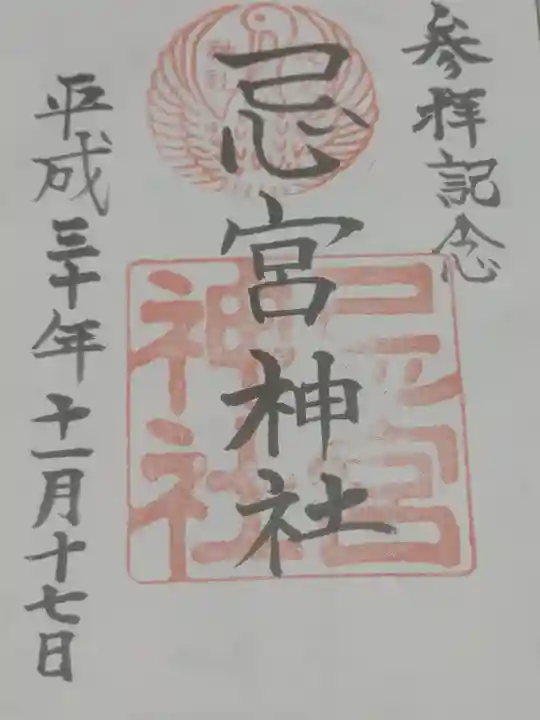 参拜記念
忌宮神社
忌宮神社
平成三十年十一月十七日